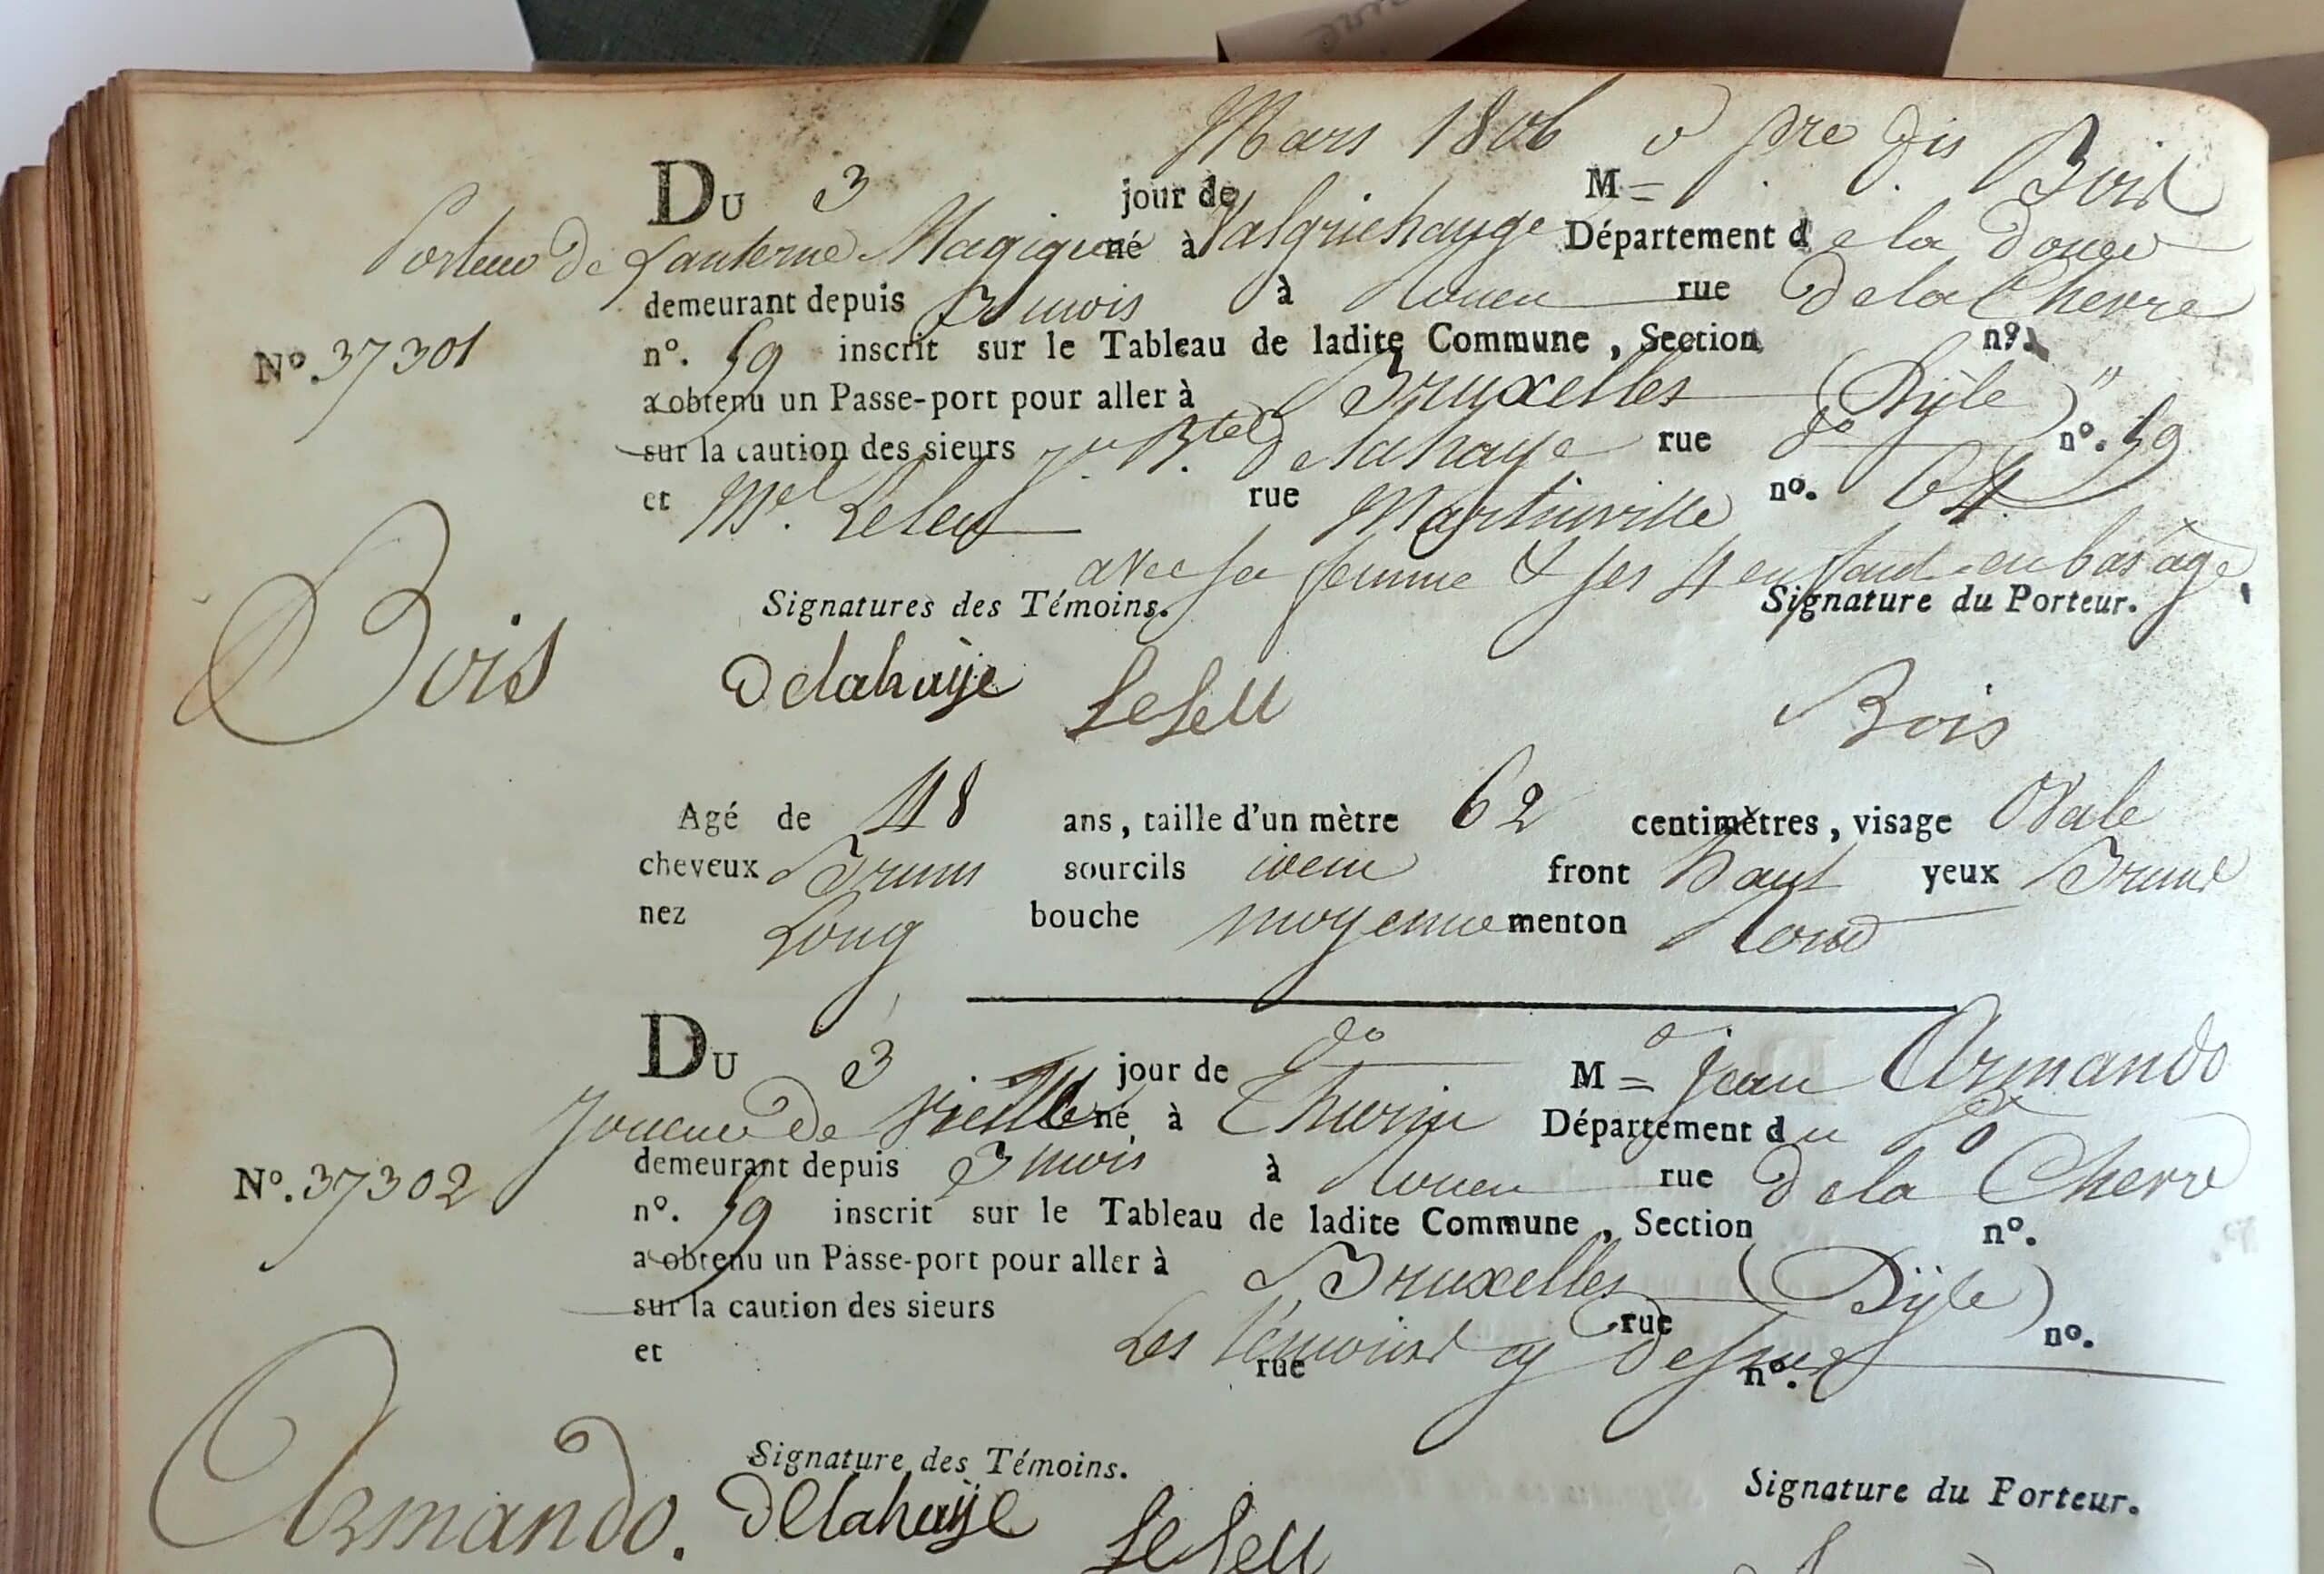 Mars 1806 pre fis Bois
Du 3 jour de M=
Porteur De Lanterne Magique né à Valgrichange Département de la Doire
demeurant depuis 3 mois à Rouen rue De la Chevre
No. 37301 n°. 59 inscrit sur le Tableau de ladite Commune, Section n°.
a obtenu un Passe-port pour aller à Bruxelles (Dÿle) "
sur la caution des sieurs Jn Bte Delahaye rue do n°. 59
et Mel rue Martinville n°. 64
avec sa femme & ses 4 enfants en bas age
Signatures des Témoins. Signature du Porteur.
Bois Delahaÿe Bois
Agé de 48 ans, taille d'un mètre 62 centimètres, visage Ovale
cheveux Bruns sourcils idem front haut yeux Bruns
nez Long bouche moyenne menton Rond
Du 3 jour de do M= Jean Armando
Joueur De Vielle né à Thurin Département du Po
demeurant depuis 3 mois à Rouen rue De la Chevre
No. 37302 n°. 59 inscrit sur le Tableau de ladite Commune, Section n°.
a obtenu un Passe-port pour aller à Bruxelles (Dÿle)
sur la caution des sieurs rue n°.
et Les témoins cy Dessus rue n°.
Signature des Témoins. Signature du Porteur.
Armando. Delahaÿe